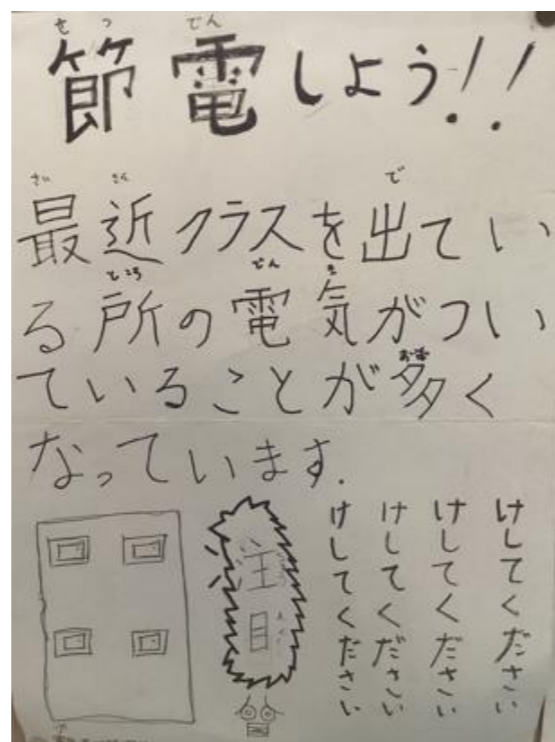 節電しよう!!
最近クラスを出てい
る所の電気がつい
ていることが多く
なっています.
けしてください
けしてください
けしてください
けしてください
注目